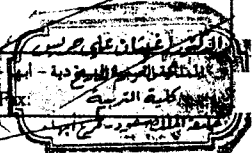 الدكتور غيثان علي جريس
المملكة العربية السعودية - أبها
كلية التربية
جامعة الملك سعود - فرع أبها